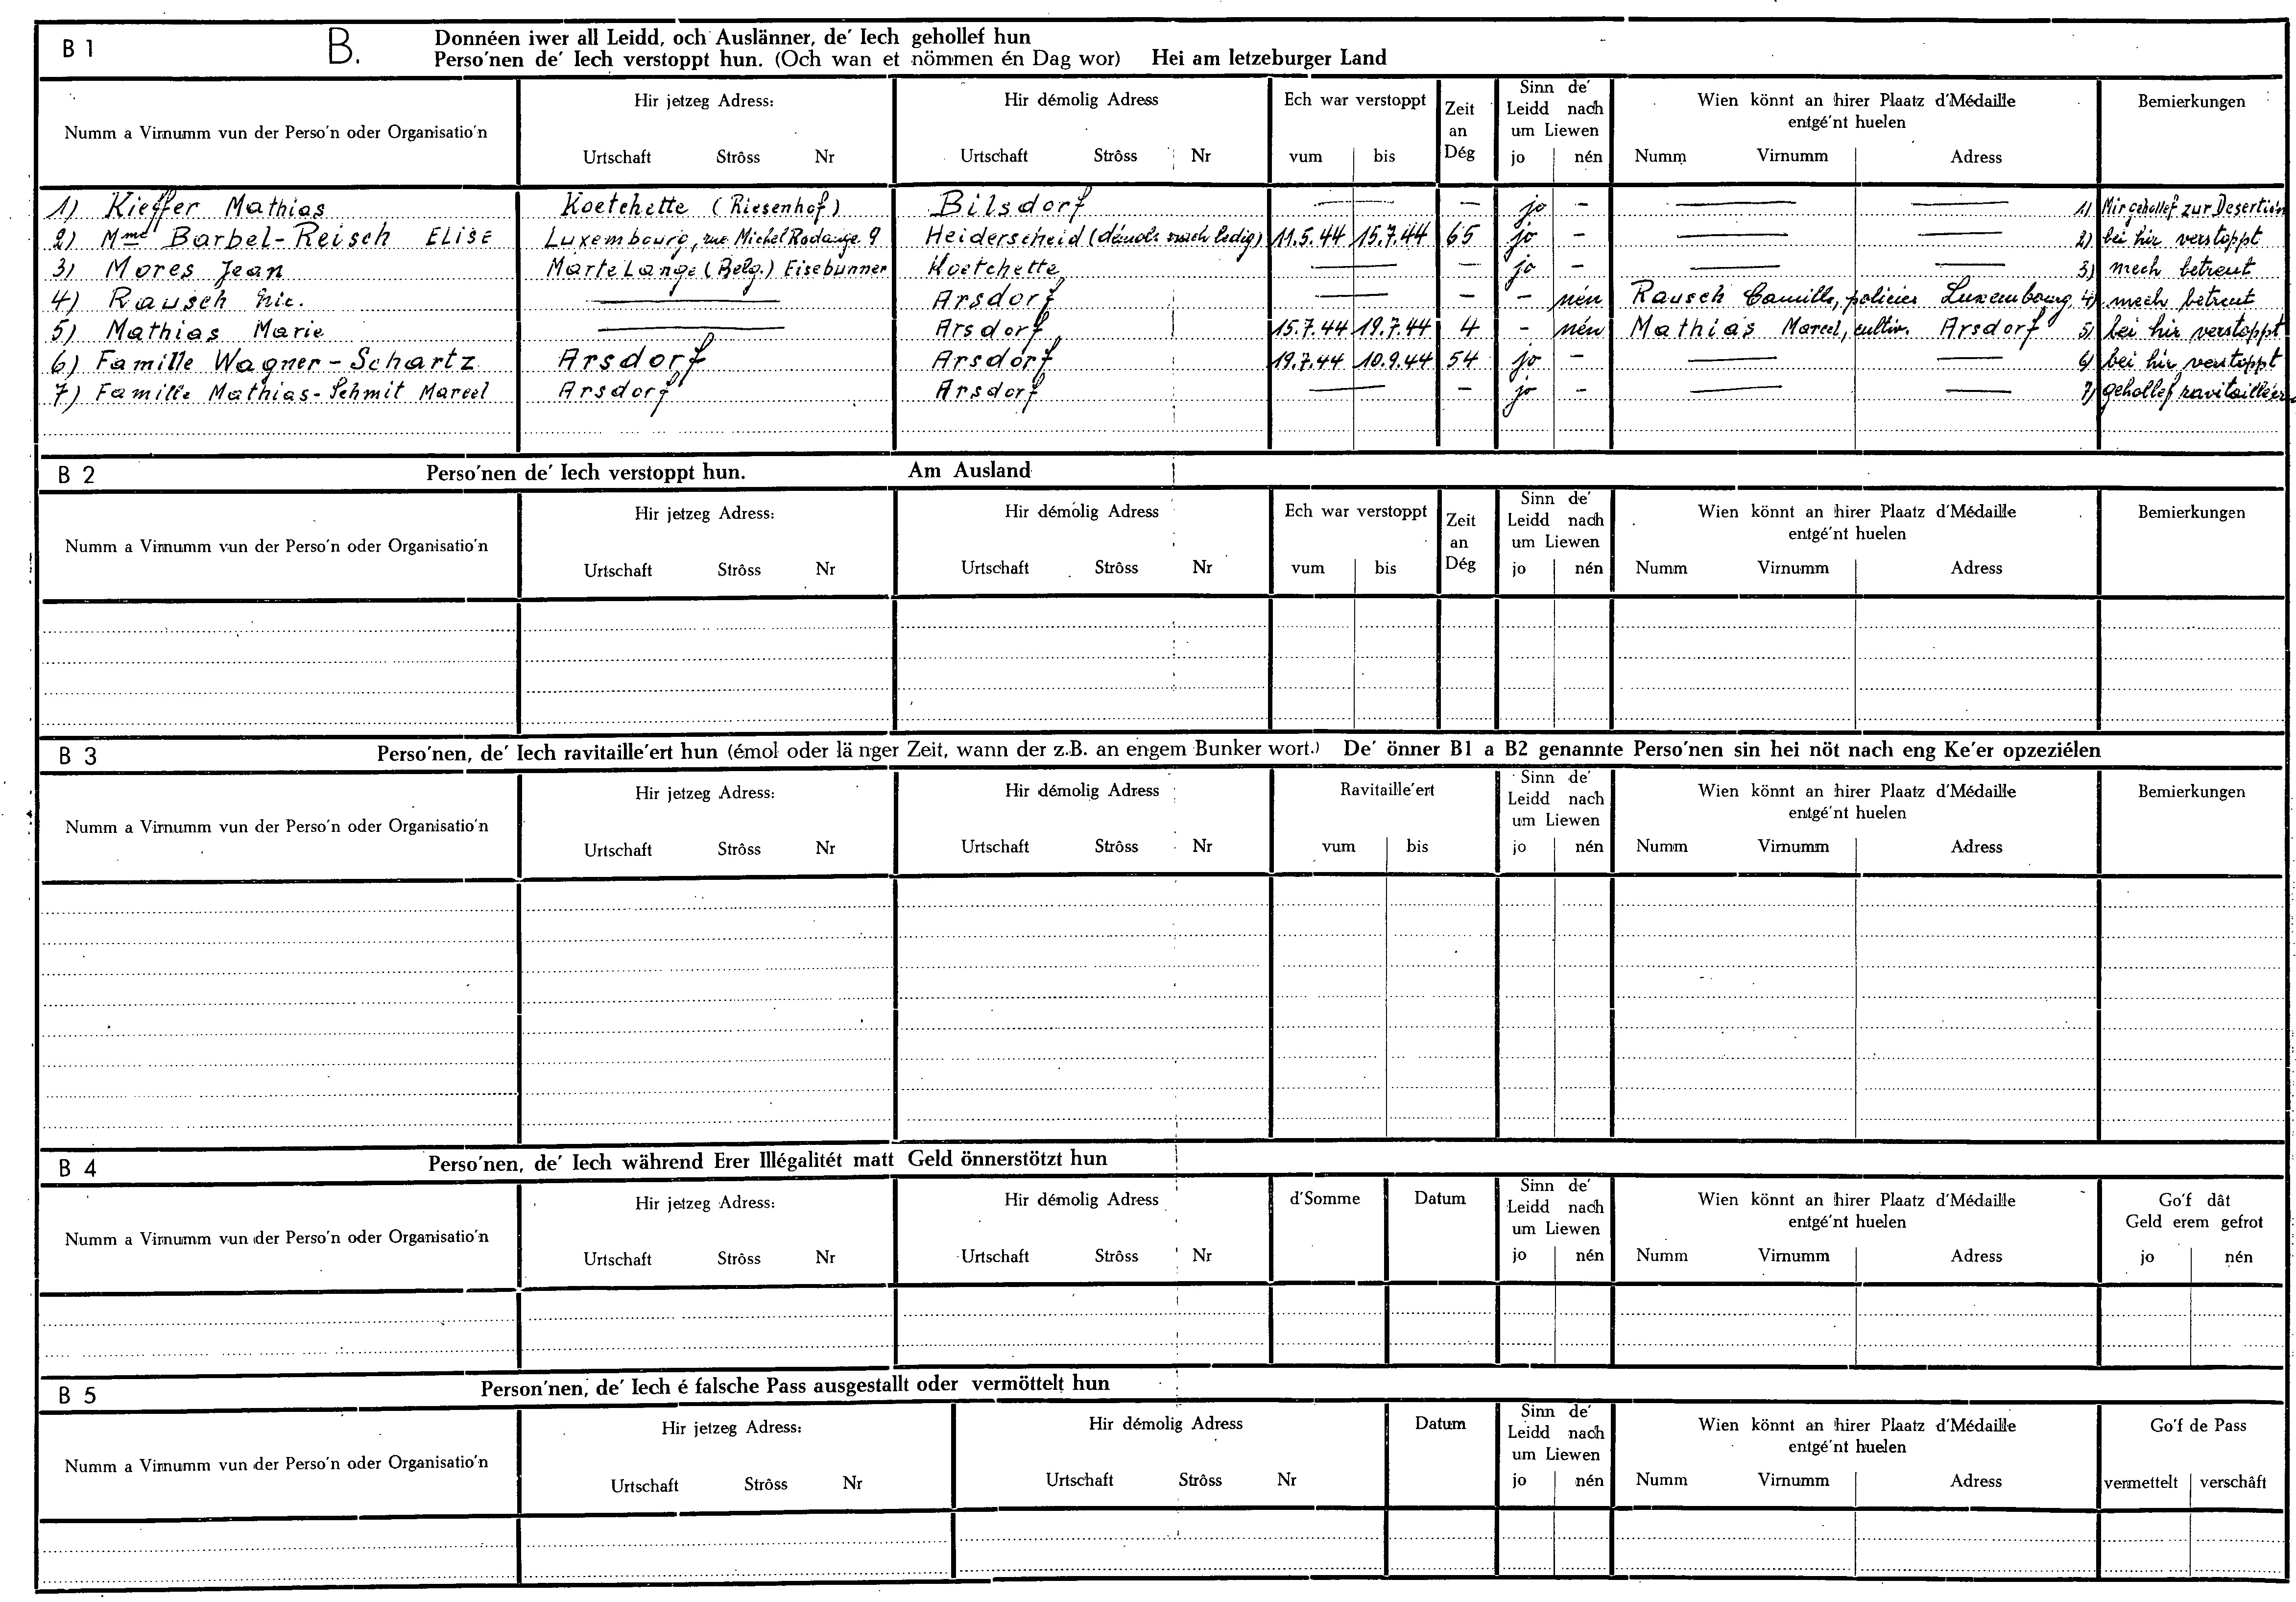 B 1 B. Donnéen iwer all Leidd, och Auslänner, de' Iech gehollef hun
Perso'nen de' Iech verstoppt hun. (Och wan et nömmen én Dag wor) Hei am letzeburger Land
Numm a Virnumm vun der Perso'n oder Organisatio'n
Hir jetzeg Adress:
Urtschaft Strôss Nr
Hir démolig Adress
Urtschaft Strôss Nr
Ech war verstoppt
vum bis
Zeit
an
Dég
Sinn de'
Leidd nach
um Liewen
jo nén
Wien könnt an hirer Plaatz d'Médaille
entgé'nt huelen
Numm Virnumm Adress
Bemierkungen
1) Kieffer Mathias Koetchette (Riesenhof) Bilsdorf — — jo - — — 1) Mir gehollef zur Desertion
2) Mme Barbel-Reisch ELISE Luxembourg, rue Michel Rodange 9 Heiderscheid (démols nach ledig) 11.5.44 15.7.44 65 jo - — — 2) bei hir verstoppt
3) Mores Jean Martelange (Belg.) Eisebunner Koetchette — — jo - — — 3) mech betreut
4) Rausch Nic. — Arsdorf — — - nén Rausch Camille, policier Luxembourg 4) mech betreut
5) Mathias Marie — Arsdorf 15.7.44 19.7.44 4 - nén Mathias Marcel, cultiv. Arsdorf 5) bei hir verstoppt
6) Famille Wagner-Schartz Arsdorf Arsdorf 19.7.44 10.9.44 54 jo - — — 6) bei hir verstoppt
7) Famille Mathias-Schmit Marcel Arsdorf Arsdorf — — jo - — — 7) gehollef ravitailléieren
B 2 Perso'nen de' Iech verstoppt hun. Am Ausland
Numm a Virnumm vun der Perso'n oder Organisatio'n
Hir jetzeg Adress:
Urtschaft Strôss Nr
Hir démolig Adress
Urtschaft Strôss Nr
Ech war verstoppt
vum bis
Zeit
an
Dég
Sinn de'
Leidd nach
um Liewen
jo nén
Wien könnt an hirer Plaatz d'Médaille
entgé'nt huelen
Numm Virnumm Adress
Bemierkungen
B 3 Perso'nen, de' Iech ravitaille'ert hun (émol oder länger Zeit, wann der z.B. an engem Bunker wort.) De' önner B1 a B2 genannte Perso'nen sin hei nöt nach eng Ke'er opzeziélen
Numm a Virnumm vun der Perso'n oder Organisatio'n
Hir jetzeg Adress:
Urtschaft Strôss Nr
Hir démolig Adress
Urtschaft Strôss Nr
Ravitaille'ert
vum bis
Sinn de'
Leidd nach
um Liewen
jo nén
Wien könnt an hirer Plaatz d'Médaille
entgé'nt huelen
Numm Virnumm Adress
Bemierkungen
B 4 Perso'nen, de' Iech während Erer Illégalitét matt Geld önnerstötzt hun
Numm a Virnumm vun der Perso'n oder Organisatio'n
Hir jetzeg Adress:
Urtschaft Strôss Nr
Hir démolig Adress
Urtschaft Strôss Nr
d'Somme
Datum
Sinn de'
Leidd nach
um Liewen
jo nén
Wien könnt an hirer Plaatz d'Médaille
entgé'nt huelen
Numm Virnumm Adress
Go'f dât
Geld erem gefrot
jo nén
B 5 Person'nen, de' Iech é falsche Pass ausgestallt oder vermöttelt hun
Numm a Virnumm vun der Perso'n oder Organisatio'n
Hir jetzeg Adress:
Urtschaft Strôss Nr
Hir démolig Adress
Urtschaft Strôss Nr
Datum
Sinn de'
Leidd nach
um Liewen
jo nén
Wien könnt an hirer Plaatz d'Médaille
entgé'nt huelen
Numm Virnumm Adress
Go'f de Pass
vermettelt verschâft